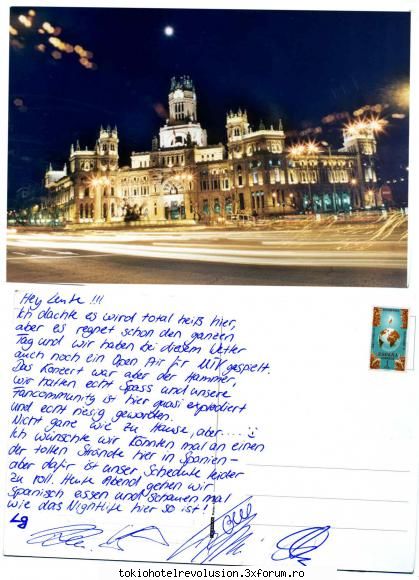 Hey Leute !!!
Ich dachte es wird total heiß hier,
aber es regnet schon den ganzen
Tag und wir haben bei diesem Wetter
auch noch ein Open Air für MTV gespielt.
Das Konzert war aber der Hammer,
wir hatten echt Spass und unsere
Fancommunity ist hier quasi explodiert
und echt riesig geworden.
Nicht ganz wie zu Hause, aber....
Ich wünschte wir könnten mal an einen
der tollen Strände hier in Spanien -
aber dafür ist unser Schedule leider
zu voll. Heute Abend gehen wir
Spanisch essen und schauen mal
wie das Nightlife hier so ist!
ESPAÑA
tokiohotelrevolusion.3xforum.ro